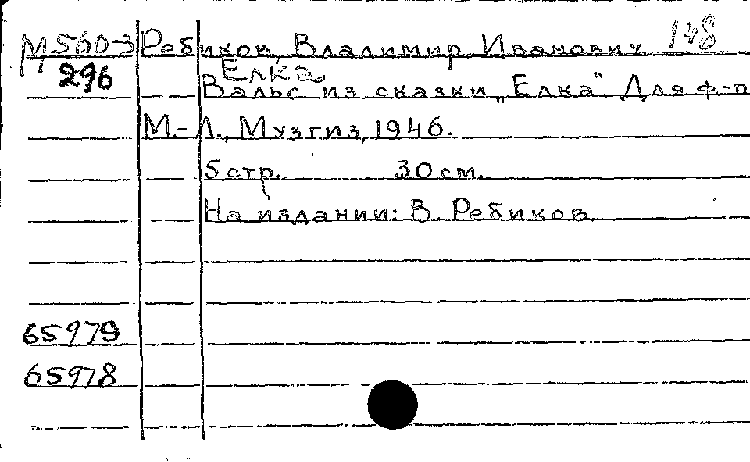 М560-3 Ребиков, Владимир Иванович 148
296 Елка
Вальс из сказки „Елка" Для ф-п
М.-Л., Музгиз, 1946.
5 стр. 30 см.
На издании: В. Ребиков.
65979
65978